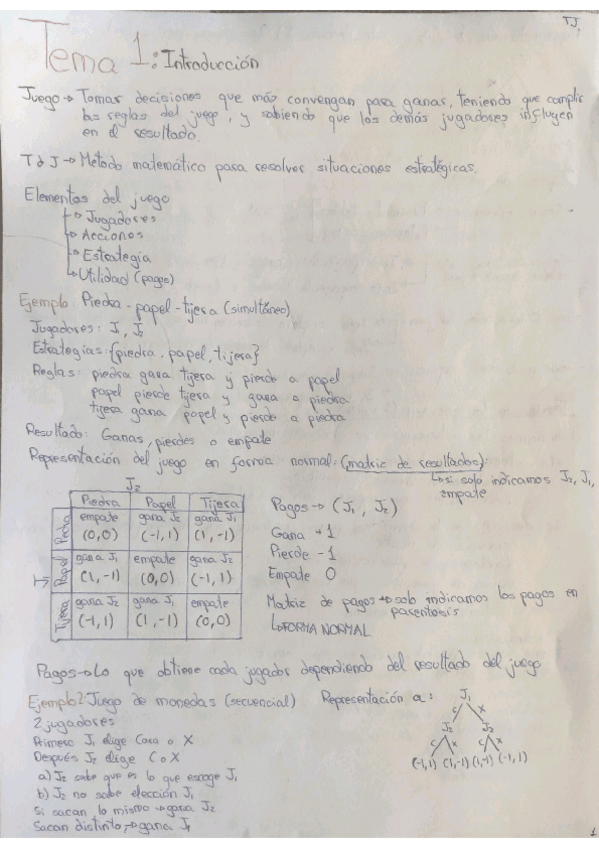 TJ
Tema 1: Introducción
Juego → Tomar decisiones que más convengan para ganar, teniendo que cumplir
las reglas del juego, y sabiendo que los demás jugadores influyen
en el resultado.
T d J → Metodo matemático para resolver situaciones estratégicas.
Elementos del juego
→ Jugadores
→ Acciones
→ Estrategia
→ Utilidad (pagos)
Ejemplo: Piedra - papel - tijera (simultáneo)
Jugadores: J₁ J₂
Estrategias: {piedra, papel, tijera}
Reglas: piedra gana tijera y pierde a papel
papel pierde tijera y gana a piedra
tijera gana papel y pierde a piedra
Resultado: Ganas, pierdes o empate
Representación del juego en forma normal: (matriz de resultados):
↳ si solo indicamos J₂, J₁,
empate
J₂
Piedra Papel Tijera
Piedra empate gana J₂ gana J₁
(0,0) (-1,1) (1,-1)
J₁ Papel gana J₁ empate gana J₂
(1,-1) (0,0) (-1,1)
Tijera gana J₂ gana J₁ empate
(-1,1) (1,-1) (0,0)
Pagos → (J₁, J₂)
Gana +1
Pierde -1
Empate 0
Matriz de pagos → solo indicamos los pagos en
parentesis
↳ FORMA NORMAL
Pagos → Lo que obtiene cada jugador dependiendo del resultado del juego
Ejemplo 2: Juego de monedas (secuencial) Representación a:
2 jugadores
Primero J₁ elige Cara o X
Después J₂ elige C o X
a) J₂ sabe que es lo que escoge J₁
b) J₂ no sabe elección J₁
Si sacan lo mismo → gana J₂
Sacan distinto, → gana J₁
J₁
C X
J₂ J₂
C X C X
(-1,1) (1,-1) (1,-1) (-1,1)
1